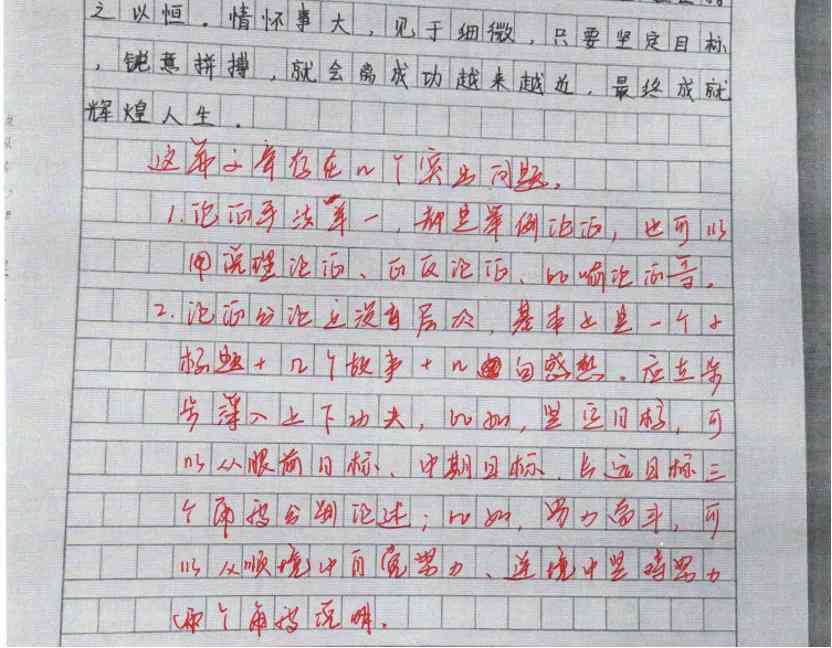 之以恒。情怀事大,见于细微,只要坚定目标
,锐意拼搏,就会离成功越来越近,最终成就
辉煌人生。
这篇文章存在几个突出问题。
1.论证手法单一,都是举例论证,也可以
用说理论证、正反论证、比喻论证等。
2.论证分论点没有层次,基本上是一个小
标题+几个故事+几句感想。应在步
步深入上下功夫,比如,坚定目标,可
以从眼前目标、中期目标、长远目标三
个角度分别论述;比如,努力奋斗,可
以从顺境中自觉努力、逆境中坚持努力
两个角度说明。